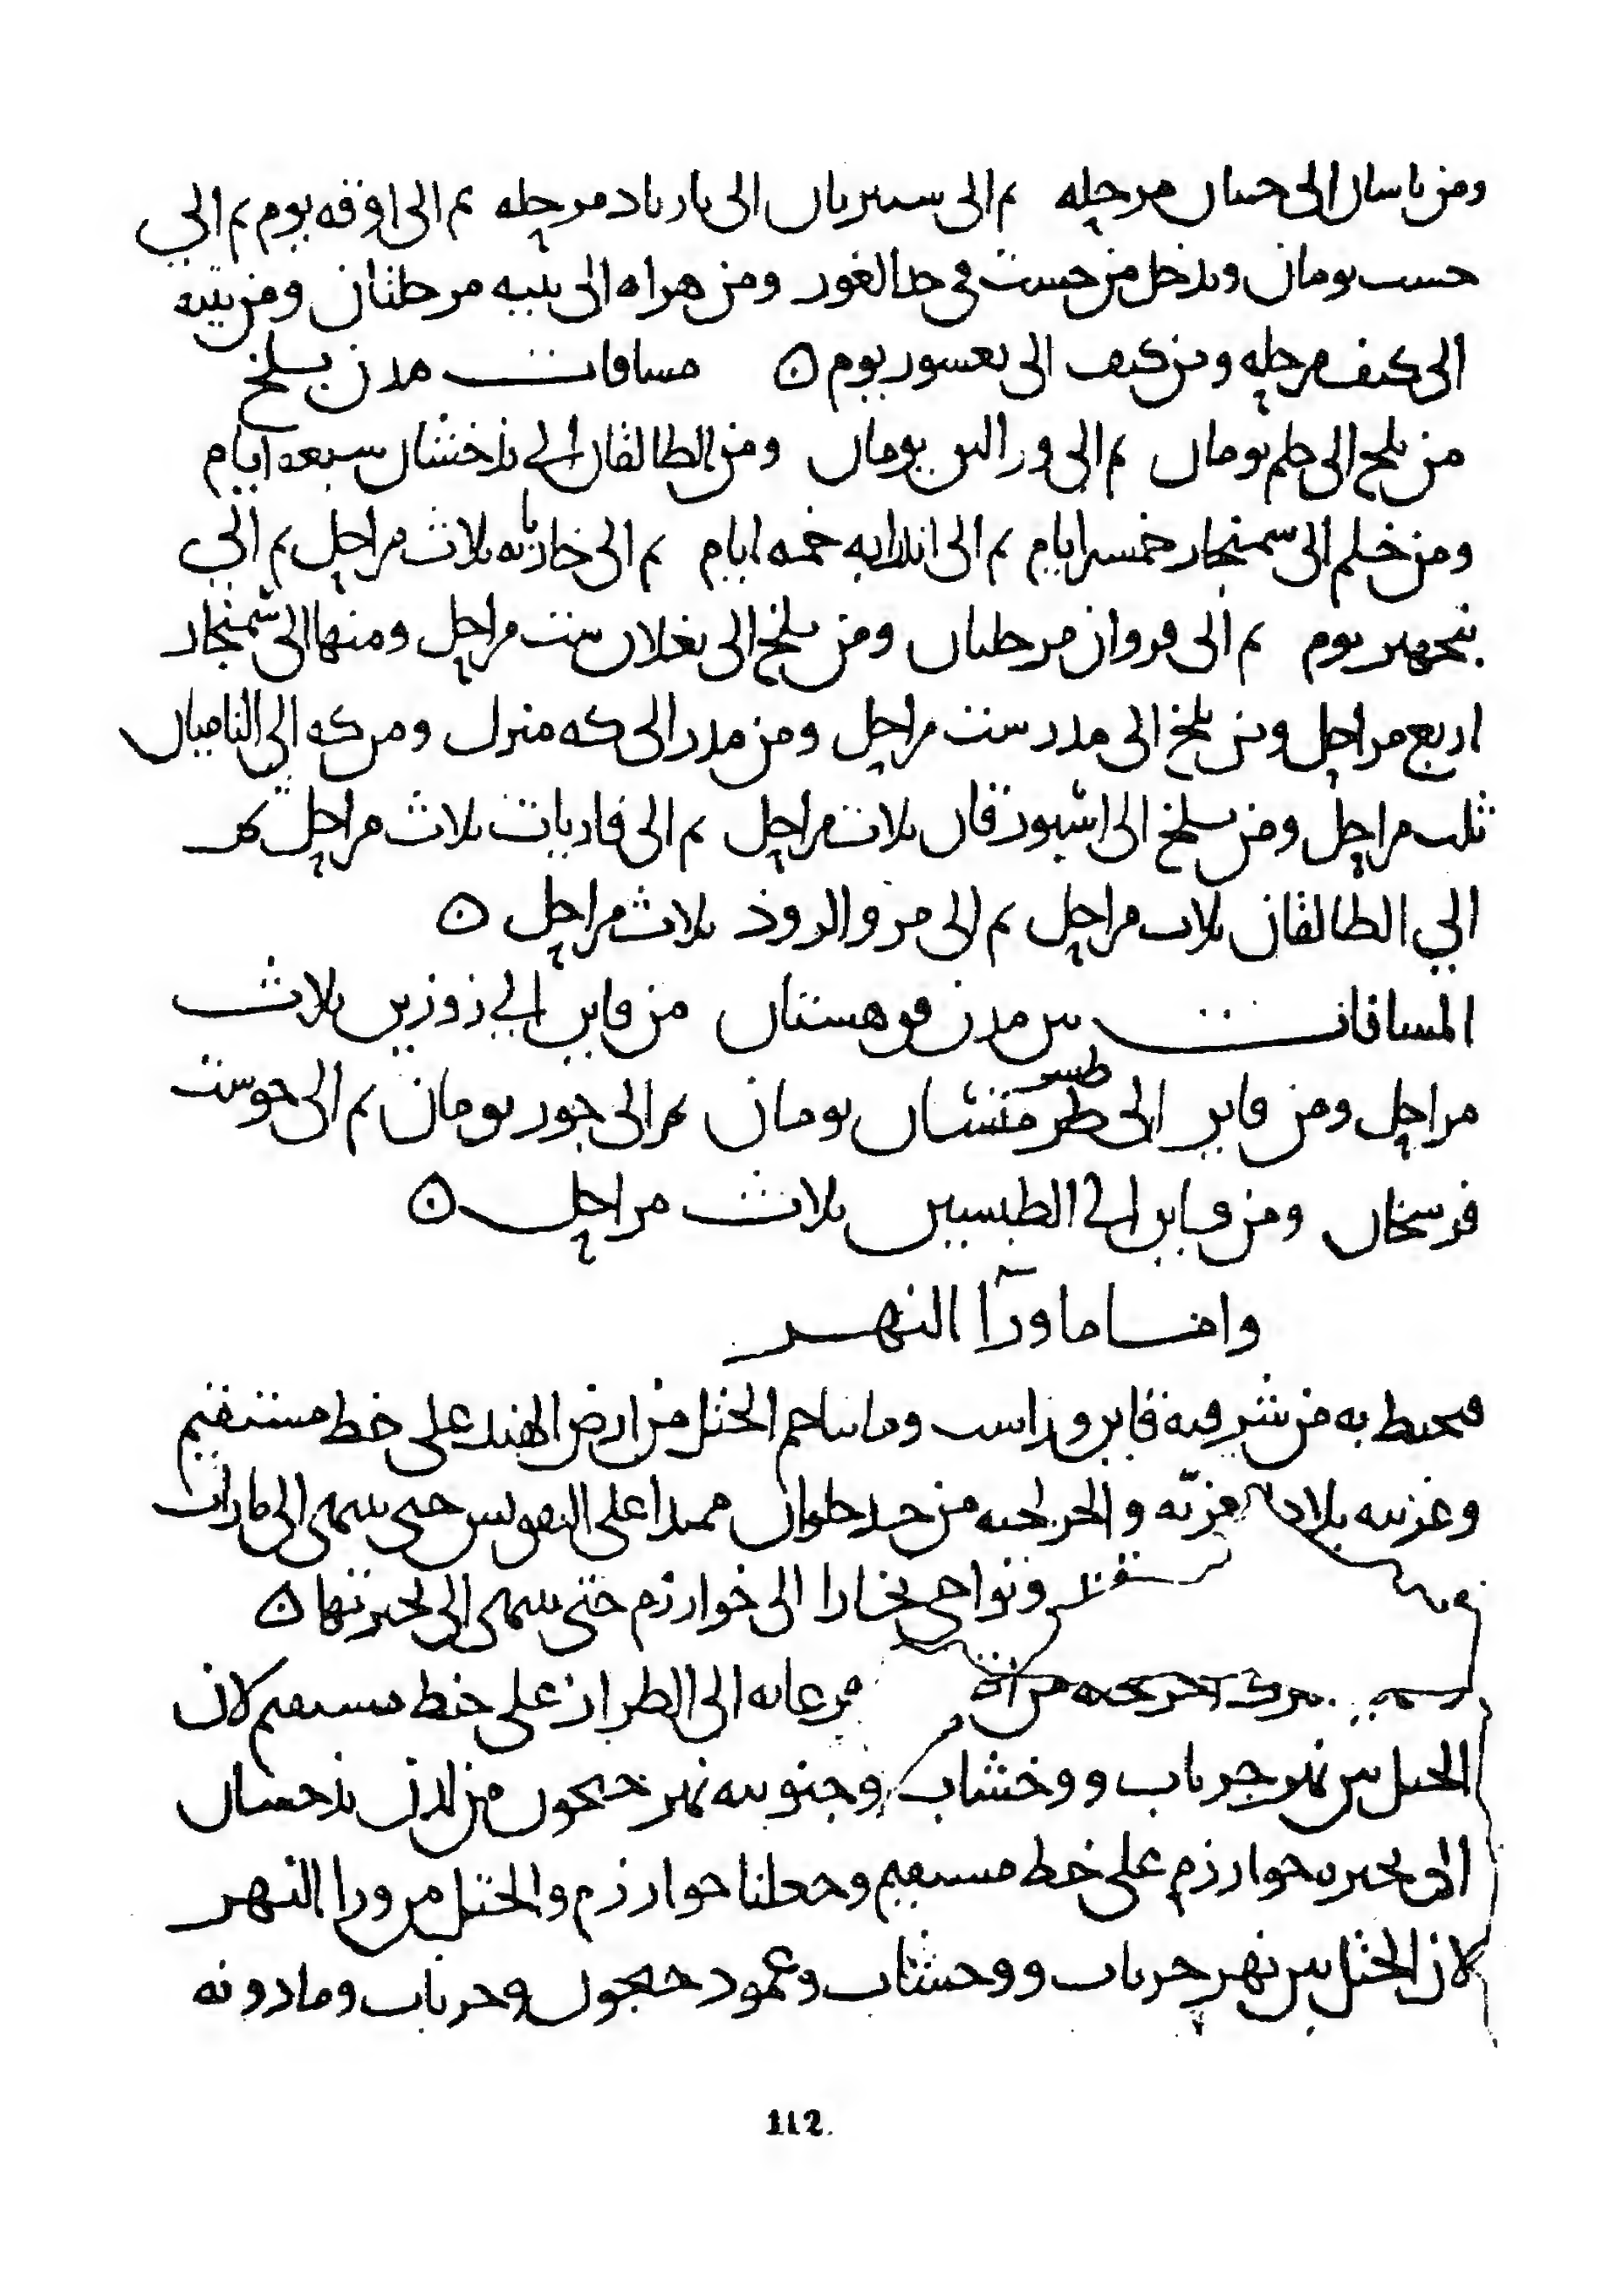 ومن باسان الى حسان مرحله ثم الى سسربان الى بارباد مرحله ثم الى اوقه يوم ثم الي
حست يومان ويدخل من حست في حد الغور ومن هراه الى ببنه مرحلتان ومن ببنه
الى كيف مرحله ومن كيف الى بغسور يوم ٥ مسافات مدن بلخ
من بلخ الى خلم يومان ثم الى ورالين يومان ومن الطالقان الى بذخشان سبعه ايام
ومن خلم الى سمنجان خمسه ايام ثم الى اندرابه خمسه ايام ثم الى خاربايه ثلاث مراحل ثم الي
بنجهير يوم ثم الى فروان مرحلتان ومن بلخ الى بغلان ست مراحل ومنها الى سمنجان
اربع مراحل ومن بلخ الى مدر ست مراحل ومن مدر الى كه منزل ومن كه الى الباميان
ثلث مراحل ومن بلخ الى اشبورقان ثلاث مراحل ثم الى فارياب ثلاث مراحل ثم
الي الطالقان ثلاث مراحل ثم الى مرو الروذ ثلاث مراحل ٥
المسافات بين مدن قوهستان من قاين الى زوزن ثلاث
مراحل ومن قاين الى طر منشان يومان ثم الى جور يومان ثم الى حوست
طبس
فرسخان ومن قاين الى الطبسين ثلاث مراحل ٥
واما ماورآ النهر
فيحيط به من شرقيه فاير وراست وما يتاخم الختل من ارض الهند على خط مستقيم
وغربيه بلاد الغزيه والخرلخيه من حد طراز ممتدا على التقويس حتى ينتهى الى فاراب
ونواحي بخارا الى خوارزم حتى ينتهى الى بحيرتها ٥
الترك الخرلخيه من فرغانه الى الطراز على خط مستقيم لان
الختل بين نهر جرياب ووخشاب وجنوبيه نهر جيحون من لدن بذخشان
الى بحيره خوارزم على خط مستقيم وجعلنا خوارزم والختل من ورا النهر
لان الختل بين نهر جرياب ووخشاب وعمود جيحون جرياب وما دونه
112